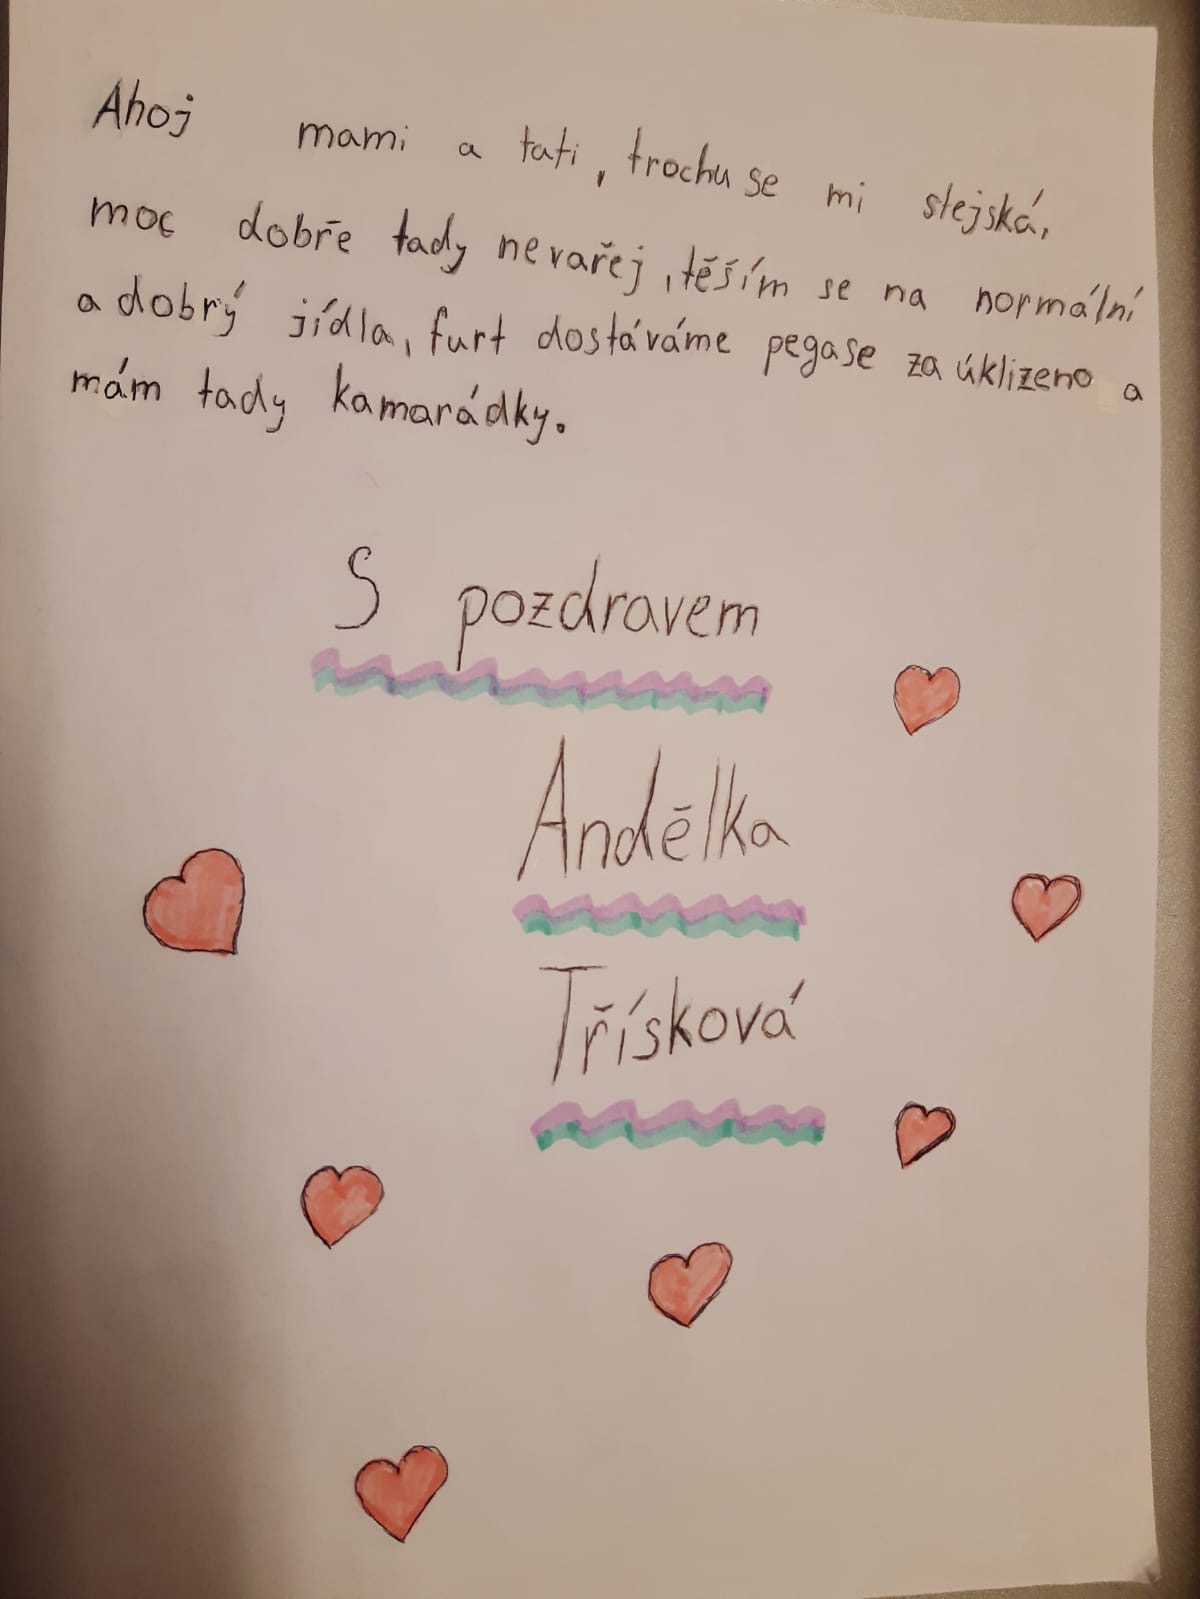 Ahoj mami a tati, trochu se mi stejská,
moc dobře tady nevařej, těším se na normální
a dobrý jídla, furt dostáváme pegase za úklizeno a
mám tady kamarádky.
S pozdravem
Andělka
Třísková